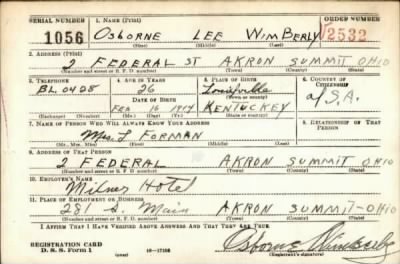 SERIAL NUMBER 1. NAME (Print) ORDER NUMBER
1056 OSBORNE LEE WIMBERLY 2532
(First) (Middle) (Last)
2. ADDRESS (Print)
2 FEDERAL ST AKRON SUMMIT OHIO
(Number and street or R. F. D. number) (Town) (County) (State)
3. TELEPHONE 4. AGE IN YEARS 5. PLACE OF BIRTH 6. COUNTRY OF CITIZENSHIP
BL 0428 26 Louisville U.S.A.
DATE OF BIRTH (Town or county)
FEB 15 1914 KENTUCKEY
(Exchange) (Number) (Mo.) (Day) (Yr.) (State or country)
7. NAME OF PERSON WHO WILL ALWAYS KNOW YOUR ADDRESS 8. RELATIONSHIP OF THAT PERSON
Mrs. L FORMAN
(Mr., Mrs., Miss) (First) (Middle) (Last)
9. ADDRESS OF THAT PERSON
2 FEDERAL AKRON SUMMIT OHIO
(Number and street or R. F. D. number) (Town) (County) (State)
10. EMPLOYER'S NAME
Milner Hotel
11. PLACE OF EMPLOYMENT OR BUSINESS
281 S. Main AKRON SUMMIT-OHIO
(Number and street or R. F. D. number) (Town) (County) (State)
I AFFIRM THAT I HAVE VERIFIED ABOVE ANSWERS AND THAT THEY ARE TRUE.
REGISTRATION CARD
D. S. S. Form 1 (over) 16-17105 Osborne Wimberly
(Registrant's signature)